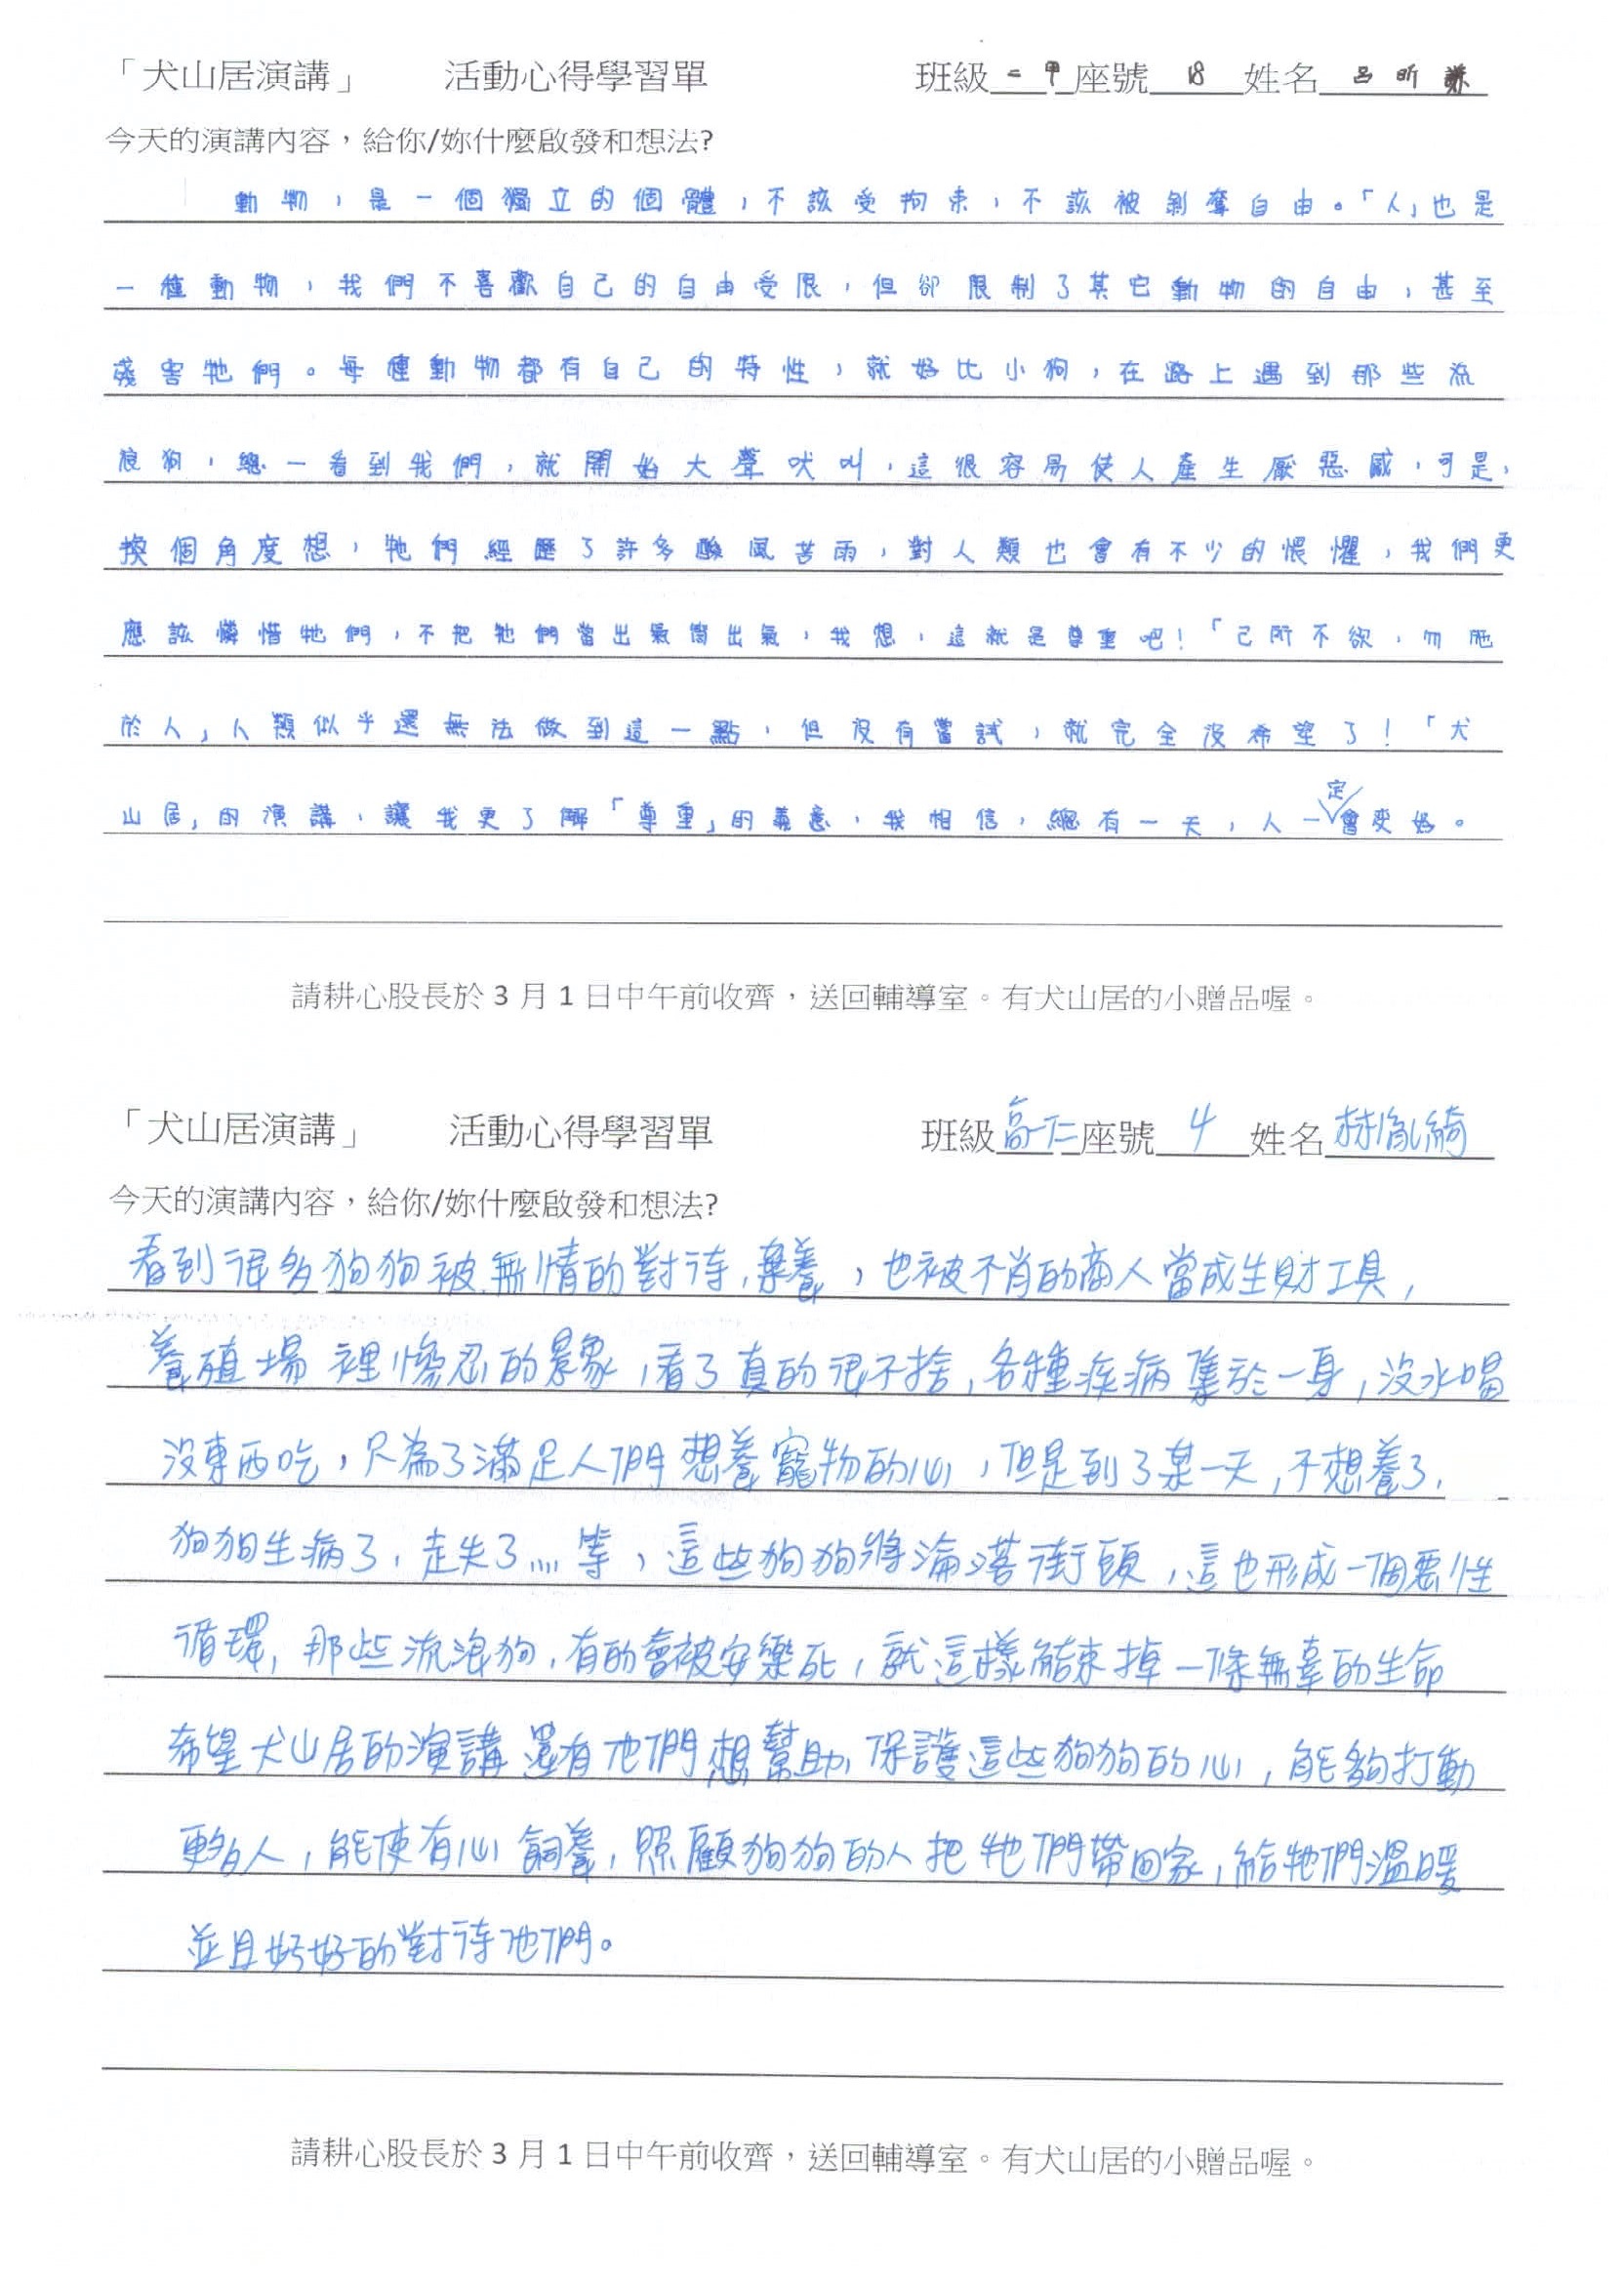 「犬山居演講」 活動心得學習單 班級二甲座號18姓名呂昕
今天的演講內容，給你/妳什麼啟發和想法?
動物，是一個獨立的個體，不該受拘束，不該被剝奪自由。「人」也是
一種動物，我們不喜歡自己的自由受限，但卻限制了其它動物的自由，甚至
殘害牠們。每種動物都有自己的特性，就好比小狗，在路上遇到那些流
浪狗，總一看到我們，就開始大聲吠叫，這很容易使人產生厭惡感，可是，
換個角度想，牠們經歷了許多酸風苦雨，對人類也會有不少的恨懼，我們更
應該憐惜牠們，不把牠們當出氣筒出氣，我想，這就是尊重吧！「己所不欲，勿施
於人」人類似乎還無法做到這一點，但沒有嘗試，就完全沒希望了！「犬
山居」的演講，讓我更了解「尊重」的義意，我相信，總有一天，人一定會變好。
請耕心股長於 3 月 1 日中午前收齊，送回輔導室。有犬山居的小贈品喔。
「犬山居演講」 活動心得學習單 班級高一仁座號4姓名林胤綺
今天的演講內容，給你/妳什麼啟發和想法?
看到很多狗狗被無情的對待，棄養，也被不肖的商人當成生財工具，
養殖場裡慘忍的景象，看了真的很不捨，各種疾病集於一身，沒水喝
沒東西吃，只為了滿足人們想養寵物的心，但是到了某一天，不想養了，
狗狗生病了，走失了……等，這些狗狗將淪落街頭，這也形成一個惡性
循環，那些流浪狗，有的會被安樂死，就這樣結束掉一條無辜的生命
希望犬山居的演講還有他們想幫助，保護這些狗狗的心，能夠打動
更多人，能使有心飼養，照顧狗狗的人把牠們帶回家，給牠們溫暖
並且好好的對待他們。
請耕心股長於 3 月 1 日中午前收齊，送回輔導室。有犬山居的小贈品喔。